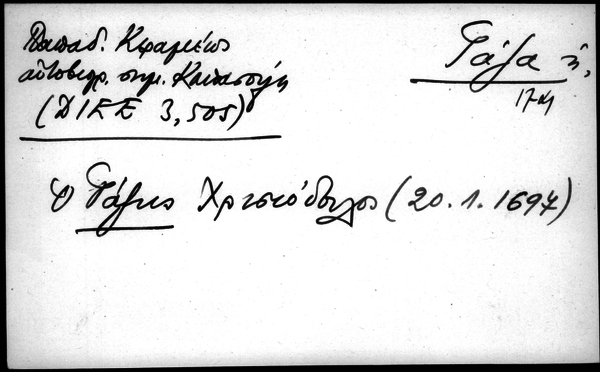 Παπαδ. Κεραμέως
αὐτοβιογρ. σημ.
(ΔΙΕΕ 3,505)
Γάζα ἡ,
ὁ Γάζης Χριστόδουλος (20.1.1697)